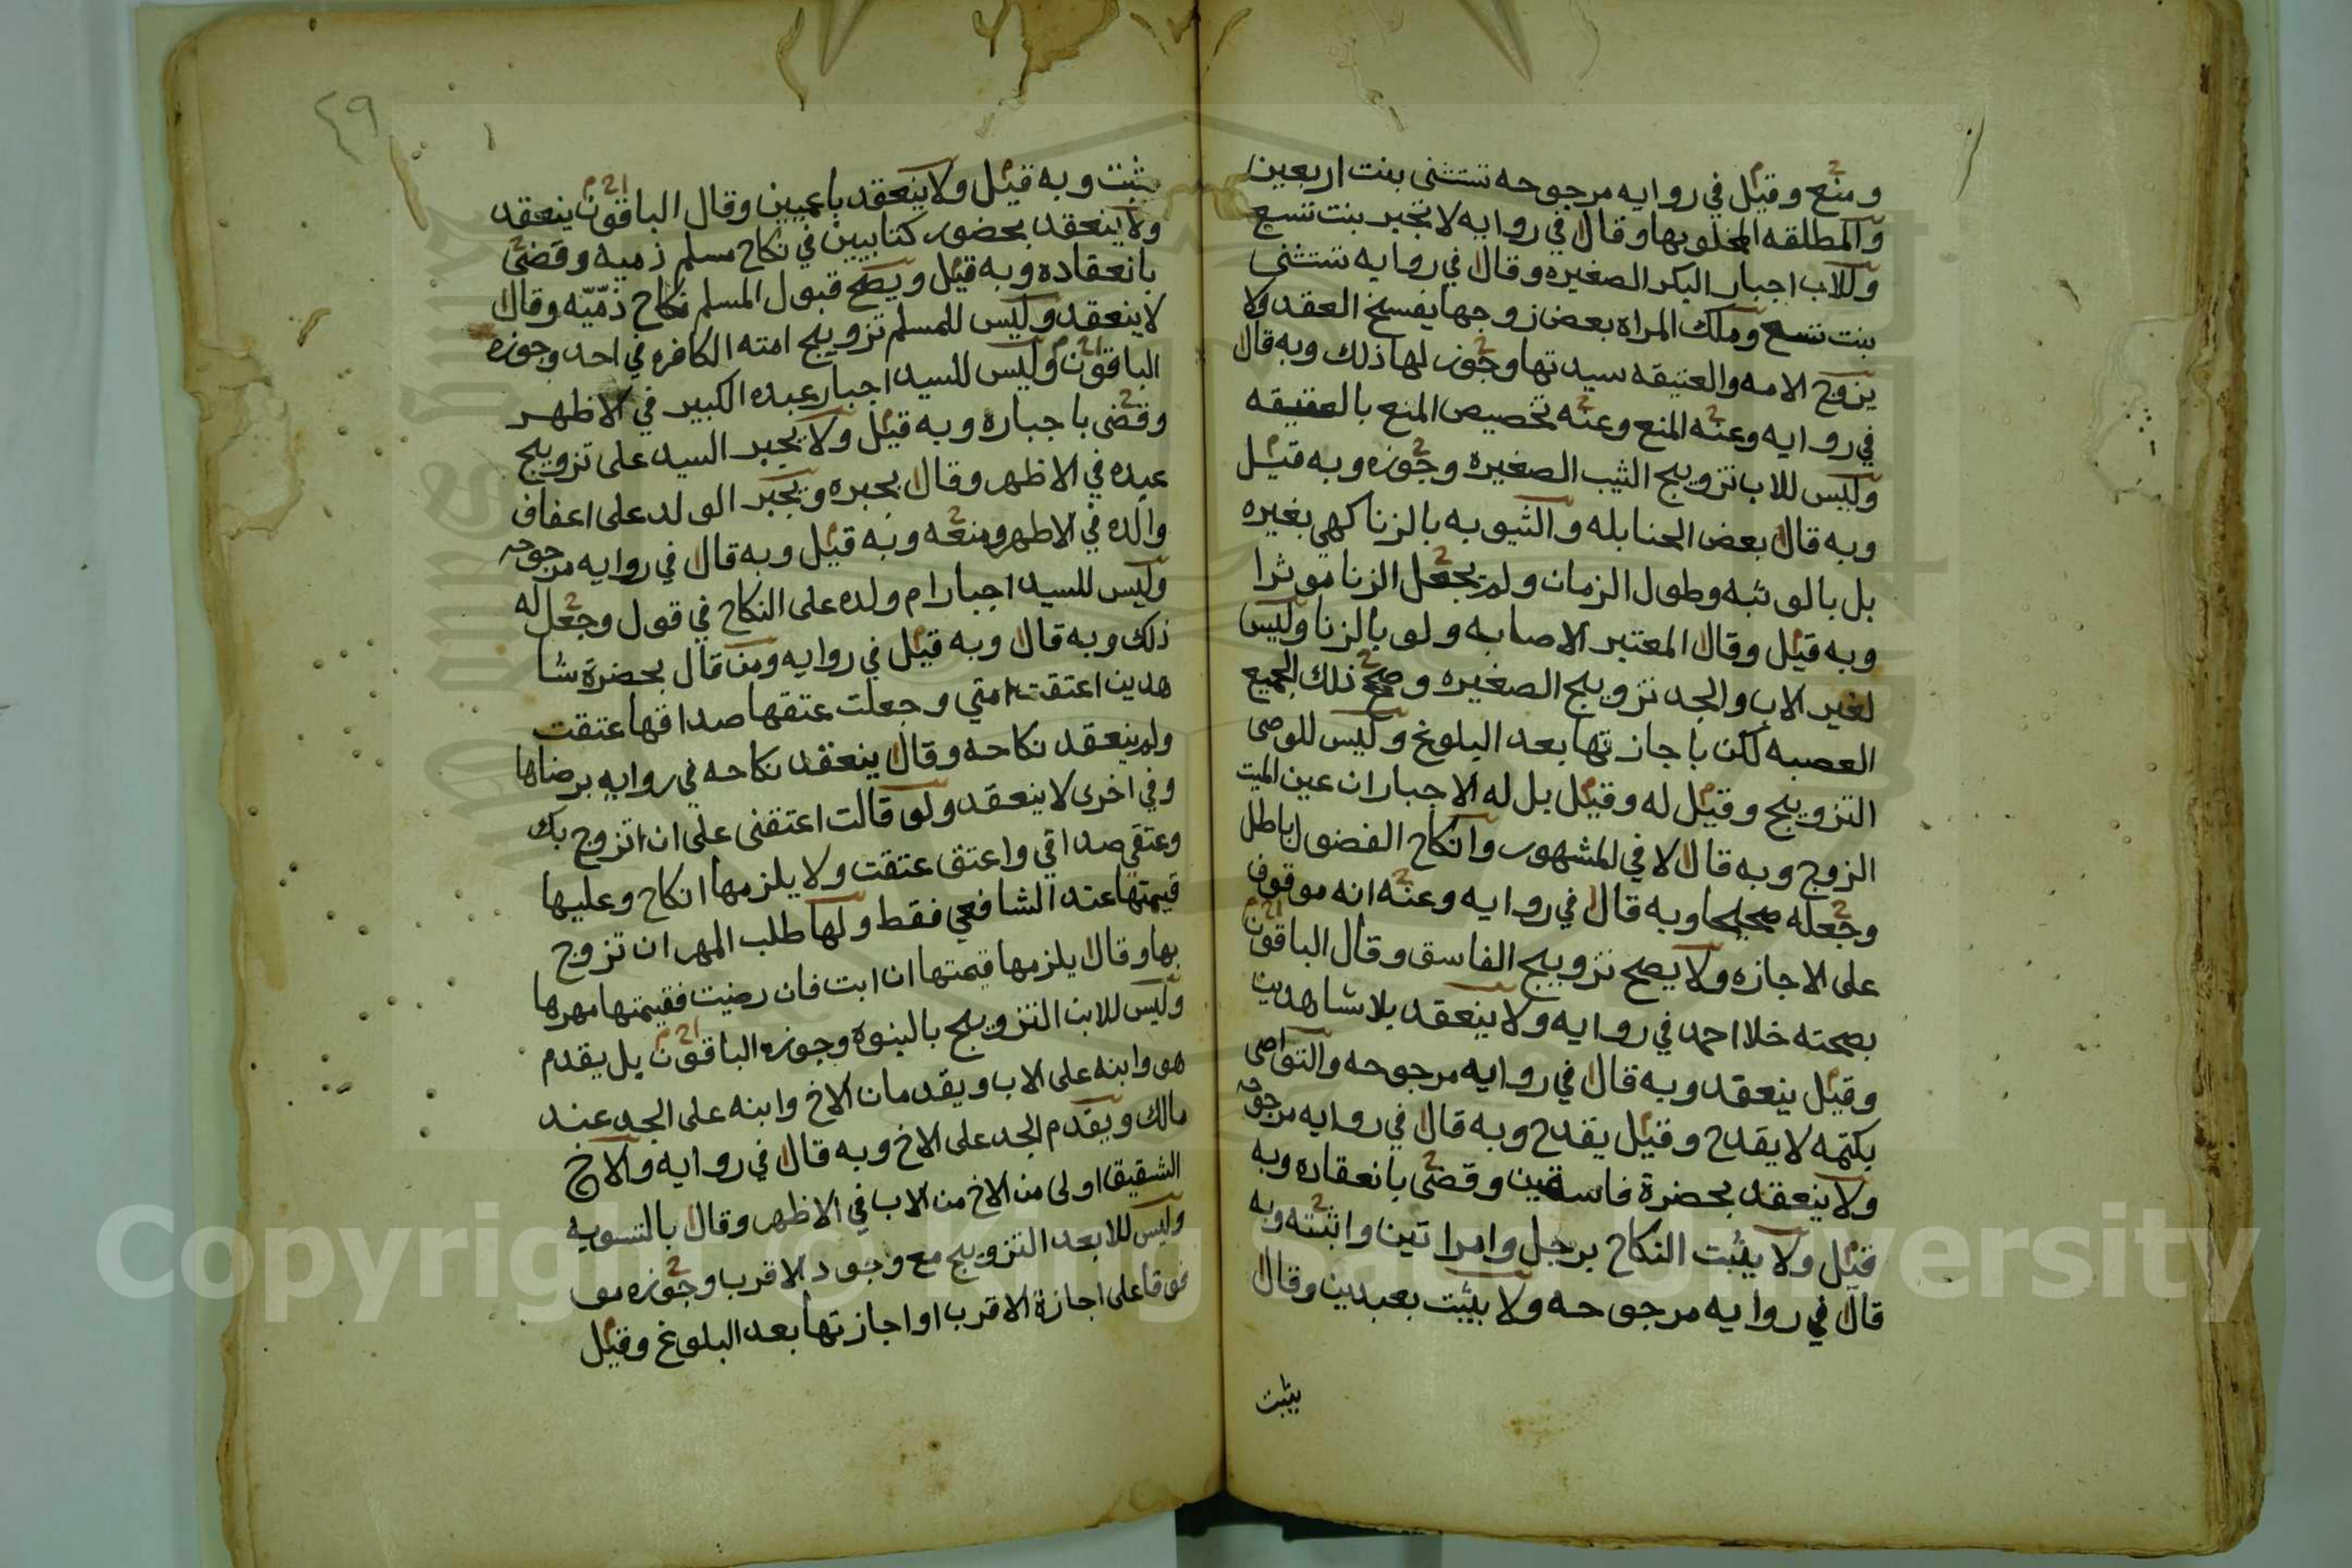 ومنع وقيل في روايه مرجوحه تستثنى بنت اربعين
والمطلقه المخلو بها وقال في روايه لا تجبر بنت تسع
وللاب اجبار البكر الصغيره وقال في روايه تستثنى
بنت تسع وملك المراه بعض زوجها يفسخ العقد ولا
يزوج الامه والعتيقه سيدتها وجوز لها ذلك وبه قال
في روايه وعنه المنع وعنه تخصيص المنع بالعتيقه
وليس للاب تزويج الثيب الصغيره وجوزه وبه قيل
وبه قال بعض الحنابله والثيوبه بالزنا كهي بغيره
بل بالوثبه وطول الزمان ولم يجعل الزنا موثرا
وبه قيل وقال المعتبر الاصابه ولو بالزنا وليس
لغير الاب والجد تزويج الصغيره وصح ذلك لجميع
العصبه لكن باجازتها بعد البلوغ وليس للوصى
التزويج وقيل له وقيل بل له الاجبار ان عين الميت
الزوج وبه قال لا في المشهور وانكاح الفضولي باطل
وجعله صحيحا وبه قال في روايه وعنه انه موقوف
على الاجازه ولا يصح تزويج الفاسق وقال الباقون
بصحته خلا احمد في روايه ولا ينعقد بلا شاهدين
وقيل ينعقد وبه قال في روايه مرجوحه والتواصى
بكتمه لا يقدح وقيل يقدح وبه قال في روايه مرجوحه
ولا ينعقد بحضرة فاسقين وقضى بانعقاده وبه
قيل ولا يثبت النكاح برجل وامراتين واثبته وبه
قال في روايه مرجوحه ولا يثبت بعبدين وقال
يثبت
٤٩
يثبت وبه قيل ولا ينعقد باعميين وقال الباقون ينعقد
ولا ينعقد بحضور كتابيين في نكاح مسلم ذميه وقضى
بانعقاده وبه قيل ويصح قبول المسلم نكاح ذمّيّه وقال
لا ينعقد وليس للمسلم تزويج امته الكافره في احد وجوزه
الباقون وليس للسيد اجبار عبده الكبير في الاظهر
وقضى باجباره وبه قيل ولا يجبر السيد على تزويج
عبده في الاظهر وقال يجبره ويجبر الولد على اعفاف
والده في الاظهر ومنعه وبه قيل وبه قال في روايه مرجوحه
وليس للسيد اجبار ام ولده على النكاح في قول وجعل له
ذلك وبه قال وبه قيل في روايه ومن قال بحضرة شا
هدين اعتقت امتي وجعلت عتقها صداقها عتقت
ولم ينعقد نكاحه وقال ينعقد نكاحه في روايه برضاها
وفي اخرى لا ينعقد ولو قالت اعتقنى على ان اتزوج بك
وعتقي صداقي واعتق عتقت ولا يلزمها انكاح وعليها
قيمتها عند الشافعي فقط ولها طلب المهر ان تزوج
بها وقال يلزمها قيمتها ان ابت فان رضيت فقيمتها مهرها
وليس للابن التزويج بالبنوه وجوزه الباقون بل يقدم
هو وابنه على الاب ويقدمان الاخ وابنه على الجد عند
مالك ويقدم الجد على الاخ وبه قال في روايه والاخ
الشقيق اولى من الاخ من الاب في الاظهر وقال بالتسويه
وليس للابعد التزويج مع وجود الاقرب وجوزه مو
قوفا على اجازة الاقرب او اجازتها بعد البلوغ وقيل
Copyright © King Saud University